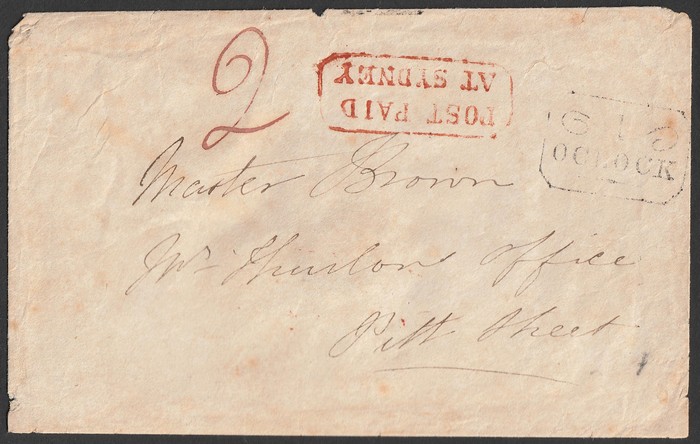 2
POST PAID
AT SYDNEY
1
OCLOCK
Master Brown
Mr office
Pitt Street